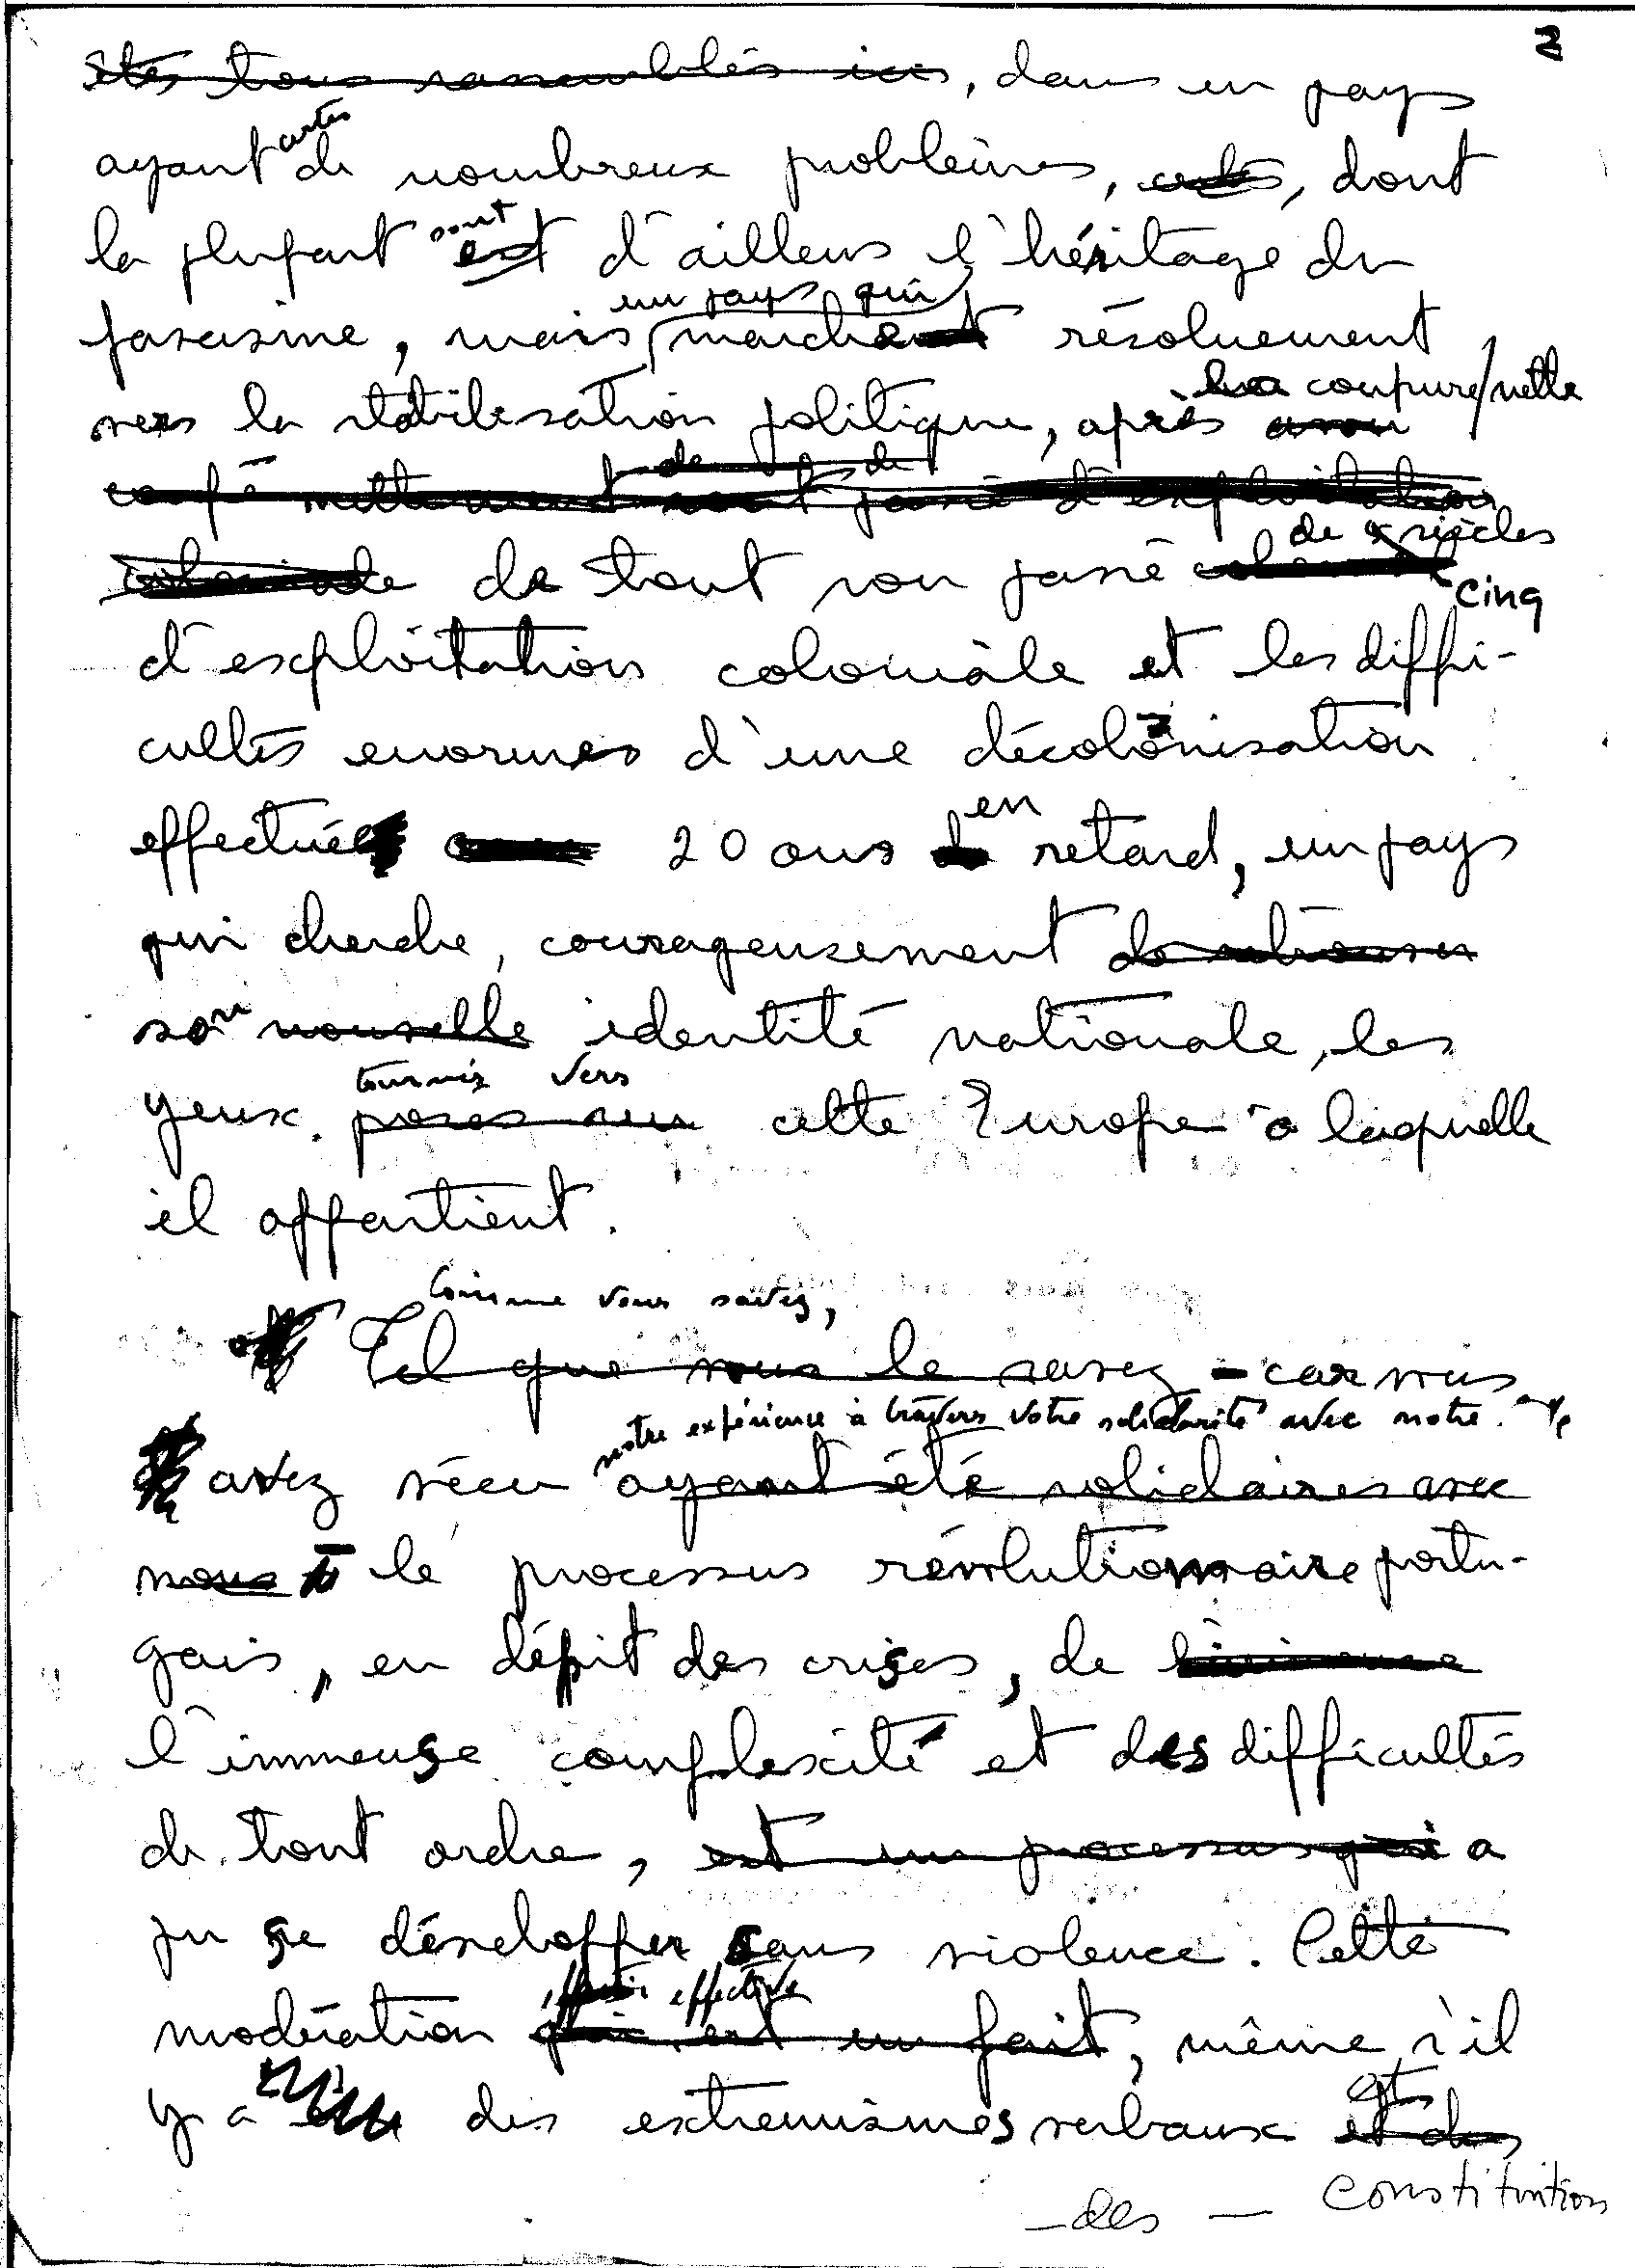 2
êtes tous rassemblés ici, dans un pays
certes
ayant de nombreux problèmes, certes, dont
sont
la plupart est d'ailleurs l'héritage du
un pays qui
fascisme, mais marche résoluement
la coupure nette
vers la stabilisation politique, après avoir
de de
coupé nettement passé d'exploitation
de siècles
coloniale de tout son passé
cinq
d'exploitation coloniale et les diffi-
cultés enormes d'une décolonisation
en
effectuée 20 ans de retard, un pays
qui cherche, courageusement de retrouver
son nouvelle identité nationale, les
tournés vers
yeux posés sur cette Europe à laquelle
il appartient.
Comme vous savez,
Tel que vous le savez - car vous
notre expérience à travers votre solidarité avec notre
avez vécu ayant été solidaires avec
nous le processus révolutionnaire portu-
gais, en dépit des crises, de l'immense
l'immense complexité et des difficultés
de tout ordre, est un processus qui a
pu se développer sans violence. Cette
effective
modération qui est un fait, même s'il
y a eu des extremismes verbaux et des
gts
- des - constitution